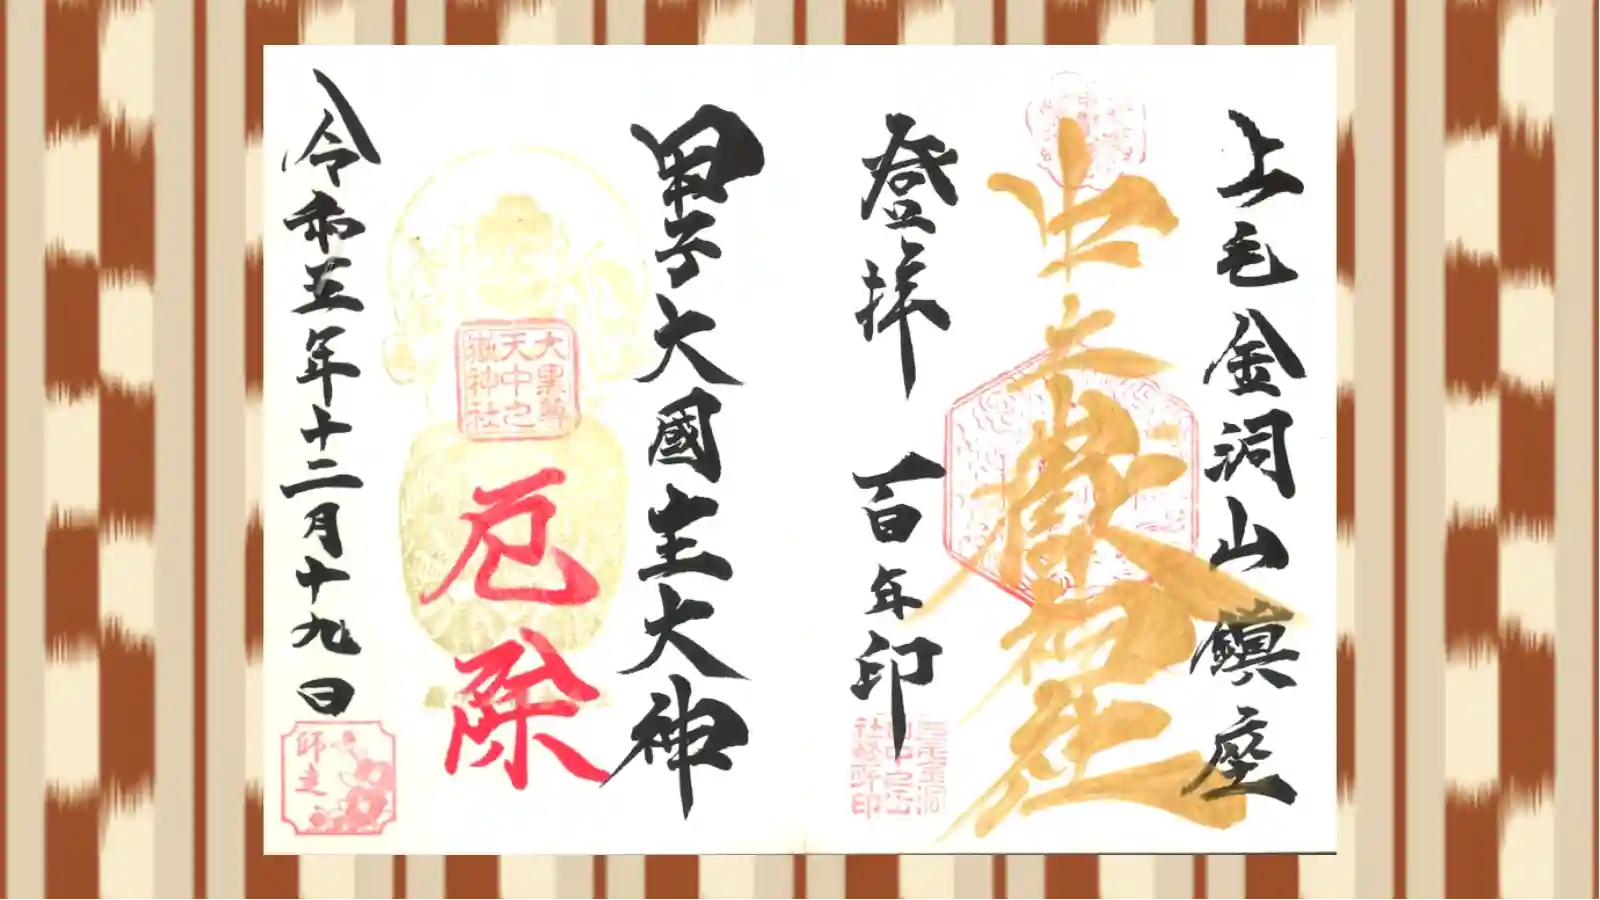 上毛金洞山鎮座
中之嶽神社
登拝 百年印
甲子大國主大神
厄除
大黒尊
天中之
嶽神社
令和五年十二月十九日
師走